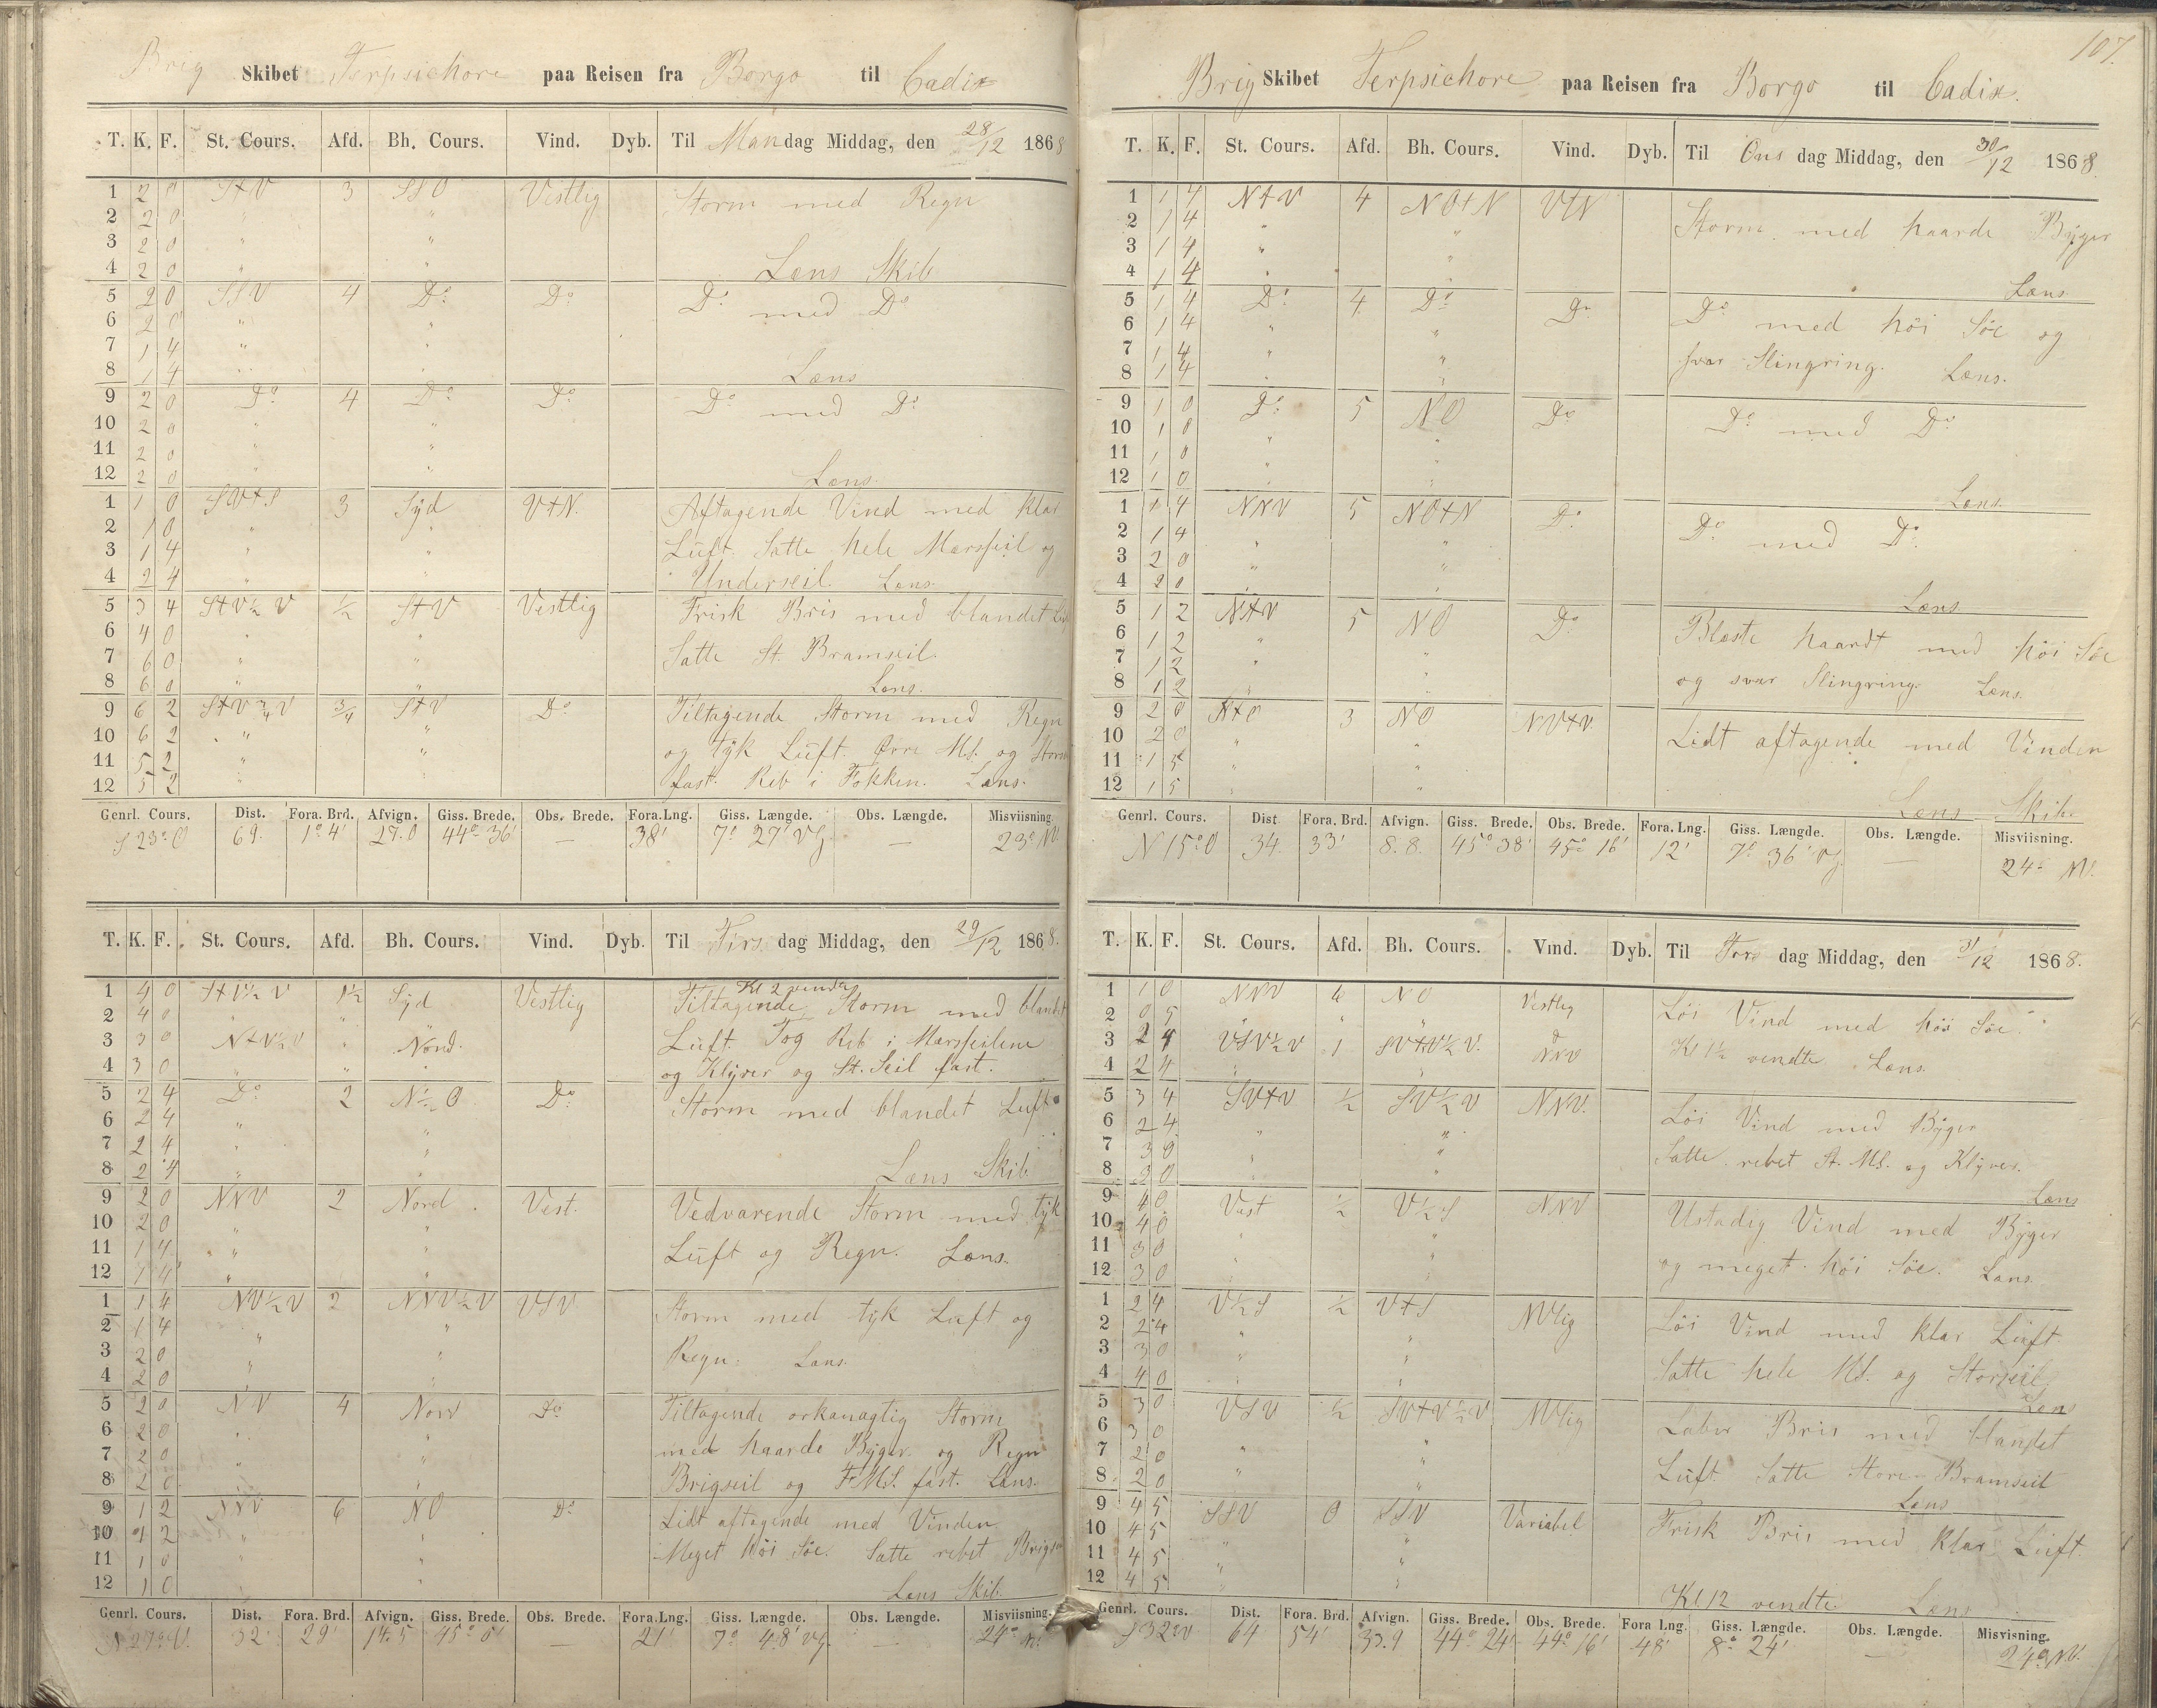 Brig Skibet Terpsichore paa Reisen fra Borgo til Cadix
T. K. F. St. Cours. Afd. Bh. Cours. Vind. Dyb. Til Mandag Middag, den 28/12 1868
1 2 0 StV 3 SSO Vestlig Storm med Regn
2 2 0 " "
3 2 0 " "
4 2 0 " " Læns Skib
5 2 0 SSV 4 Do Do Do med Do
6 2 0 " "
7 1 4 " "
8 1 4 " " Læns
9 2 0 Do 4 Do Do Do med Do
10 2 0 " "
11 2 0 " "
12 2 0 " " Læns
1 1 0 SVtS 3 Syd VtN. Aftagende Vind med klar
2 1 0 " "
3 1 4 " " Luft. Satte hele Mersseil og
4 2 4 " " Underseil. Læns.
5 3 4 StV½V ½ StV Vestlig Frisk Bris med blandet
6 4 0 " "
7 6 0 " " Satte St. Bramseil.
8 6 0 " " Læns.
9 6 2 StV¾V ¾ StV Do Tiltagende Storm med Regn
10 6 2 " " og tyk Luft. Øvre Ms. og
11 5 2 " "
12 5 2 " " fast. Reb i Fokken. Læns.
Genrl. Cours. Dist. Fora. Brd. Afvign. Giss. Brede. Obs. Brede. Fora. Lng. Giss. Længde. Obs. Længde. Misviisning
S 23° O 69. 1° 4' 27.0 44° 36' — 38' 7° 27' VG. — 23° NV.
T. K. F. St. Cours. Afd. Bh. Cours. Vind. Dyb. Til Tirsdag Middag, den 29/12 1868.
Kl 2 vendte
1 4 0 StV½V 1½ Syd Vestlig Tiltagende Storm med blandet
2 4 0 " " "
3 3 0 NtV½V " Nord. Luft. Tog Reb i Mersseilene
4 3 0 " " " og Klyver og St. Seil fast.
5 2 4 Do 2 N½O Do Storm med blandet Luft
6 2 4 " "
7 2 4 " "
8 2 4 " " Læns Skib
9 2 0 NNV 2 Nord Vest. Vedvarende Storm med tyk
10 2 0 " "
11 1 4 " " Luft og Regn. Læns.
12 1 4 " "
1 1 4 NV½V 2 NNV½V VSV Storm med tyk Luft og
2 1 4 " "
3 2 0 " " Regn. Læns.
4 2 0 " "
5 2 0 NV 4 Nord Do Tiltagende orkanagtig Storm
6 2 0 " " med haarde Byger og Regn
7 2 0 " "
8 2 0 " " Brigseil og F. MS. fast. Læns.
9 1 2 NNV 6 NO Do Lidt aftagende med Vinden
10 1 2 " " Meget høi Søe. Satte rebet
11 1 0 " "
12 1 0 " Læns Skib.
Genrl. Cours. Dist. Fora. Brd. Afvign. Giss. Brede. Obs. Brede. Fora. Lng. Giss. Længde. Obs. Længde. Misviisning.
N 27° V. 32' 29' 14.5 45° 5' — 21' 7° 48' VG. — 24° NV.
107.
Brig Skibet Terpsichore paa Reisen fra Borgo til Cadix.
T. K. F. St. Cours. Afd. Bh. Cours. Vind. Dyb. Til Onsdag Middag, den 30/12 1868.
1 1 4 NtV 4 NOtN VtN Storm med haarde Byger
2 1 4 " "
3 1 4 " "
4 1 4 " " Læns
5 1 4 Do 4 Do Do Do med høi Søe og
6 1 4 " "
7 1 4 " " svær Slingring. Læns.
8 1 4 " "
9 1 0 Do 5 NO Do Do med Do
10 1 0 " "
11 1 0 " "
12 1 0 " " Læns.
1 1 4 NNV 5 NOtN Do Do med Do
2 1 4 " "
3 2 0 " "
4 2 0 " " Læns
5 1 2 NtV 5 NO Do Blæste haardt med høi Søe
6 1 2 " "
7 1 2 " " og svær Slingring. Læns.
8 1 2 " "
9 2 0 NtO 3 NO NVtV. Lidt aftagende med Vinden
10 2 0 " "
11 1 5 " "
12 1 5 " " Læns Skib.
Genrl. Cours. Dist Fora. Brd. Afvign. Giss. Brede. Obs. Brede. Fora. Lng. Giss. Længde. Obs. Længde. Misviisning.
N 15° O 34. 33' 8.8. 45° 38' 45° 18' 12' 7° 36' VG. — 24° NV.
T. K. F. St. Cours. Afd. Bh. Cours. Vind. Dyb. Til Torsdag Middag, den 31/12 1868.
1 1 0 NNV 6 NO Vestlig Løi Vind med høi Søe.
2 0 5 " " "
3 2 4 VSV½V 1 SVtV½V. NNV Kl 1½ vendte. Læns.
4 2 4 " "
5 3 4 SVtV ½ SV½V NNV. Løi Vind med Byger
6 2 4 " "
7 3 0 " " Satte rebet St. MS. og Klyver.
8 3 0 " " Læns
9 4 0 Vest ½ V½S NNV Ustadig Vind med Byger
10 4 0 " "
11 3 0 " " og meget høi Søe. Læns.
12 3 0 " "
1 2 4 V½S ½ VtS NVlig Løi Vind med klar Luft
2 2 4 " "
3 3 0 " " Satte hele MS. og Storseil.
4 4 0 " " Læns
5 3 0 VSV ½ SVtV½V NVlig Laber Bris med blandet
6 3 0 " "
7 2 0 " " Luft. Satte Store Bramseil
8 2 0 " " Læns
9 4 5 SSV 0 SSV Variabel Frisk Bris med klar Luft.
10 4 5 " "
11 4 5 " "
12 4 5 " " Kl 12 vendte. Læns
Genrl. Cours. Dist. Fora. Brd. Afvign. Giss. Brede. Obs. Brede. Fora Lng. Giss. Længde. Obs. Længde. Misvisning.
S 32° V 64 54' 33.9 44° 24' 44° 16' 48' 8° 24' — 24° NV.